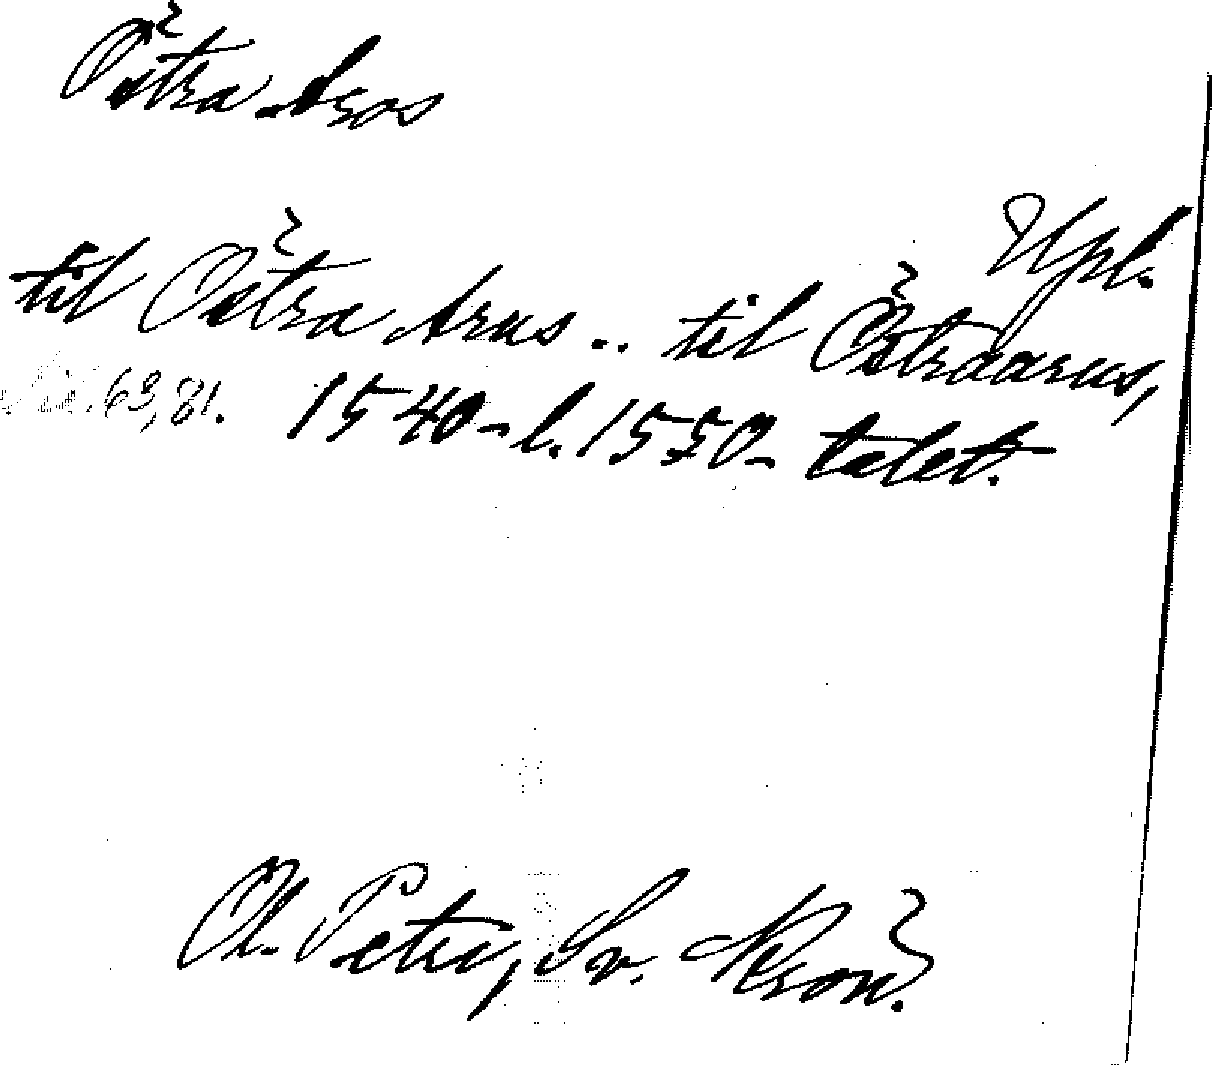 Östra Aros
Upl.
til Östra Arus .. til Östraarus,
63, 81. 1540- l. 1550- talet.
Ol. Petri, Sv. Krön.